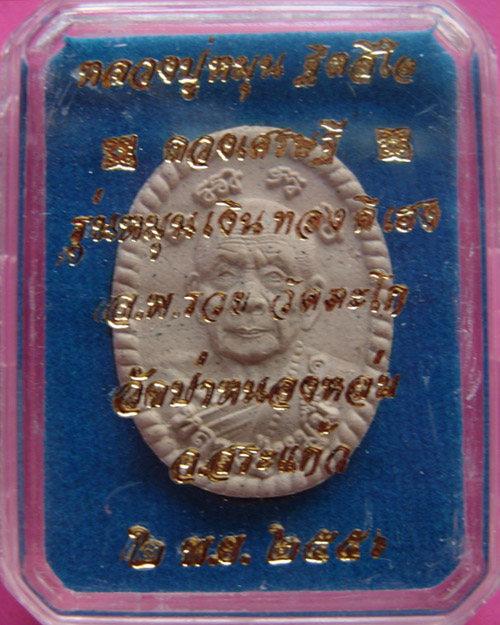 หลวงปู่หมุน ฐิตสีโล
ดวงเศรษฐี
รุ่นหมุนเงิน ทอง ดี เฮง
ล.พ.รวย วัดตะโก
วัดป่าหนองหล่ม
จ.สระแก้ว
๒ พ.ย. ๒๕๕๖